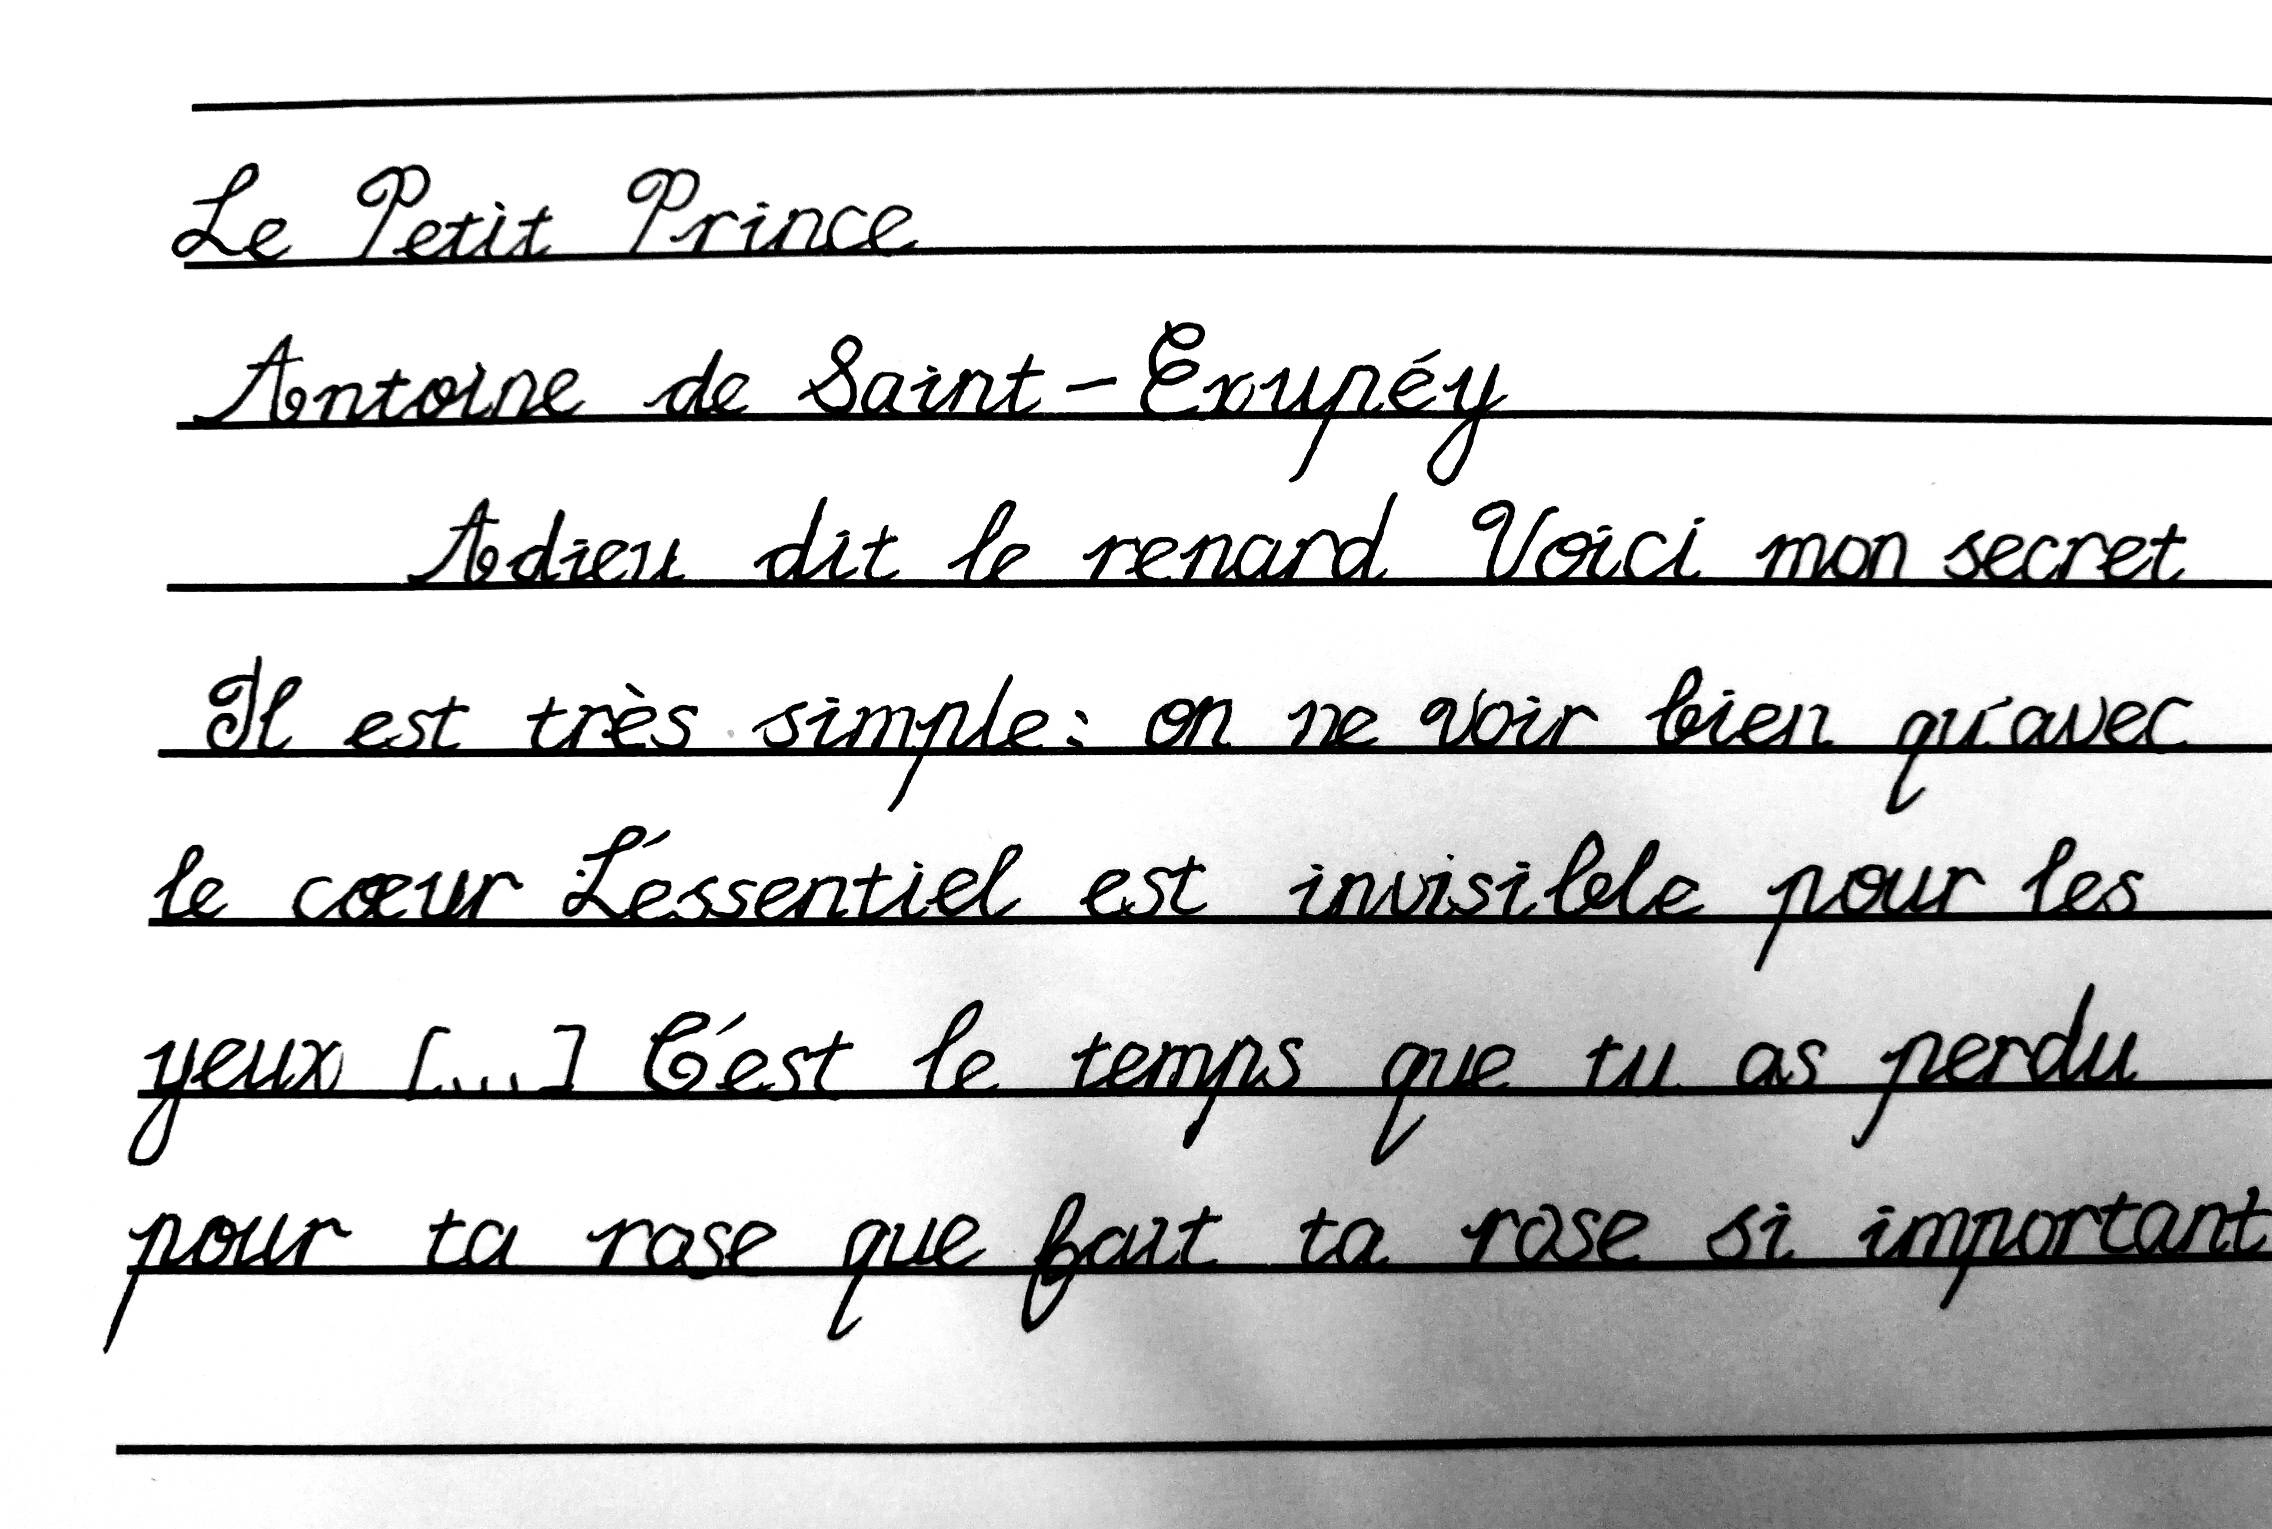 Le Petit Prince
Antoine de Saint-Exupéy
Adieu dit le renard Voici mon secret
Il est très simple: on ne voir bien qu'avec
le cœur L'essentiel est invisible pour les
yeux [...] C'est le temps que tu as perdu
pour ta rose que fait ta rose si important